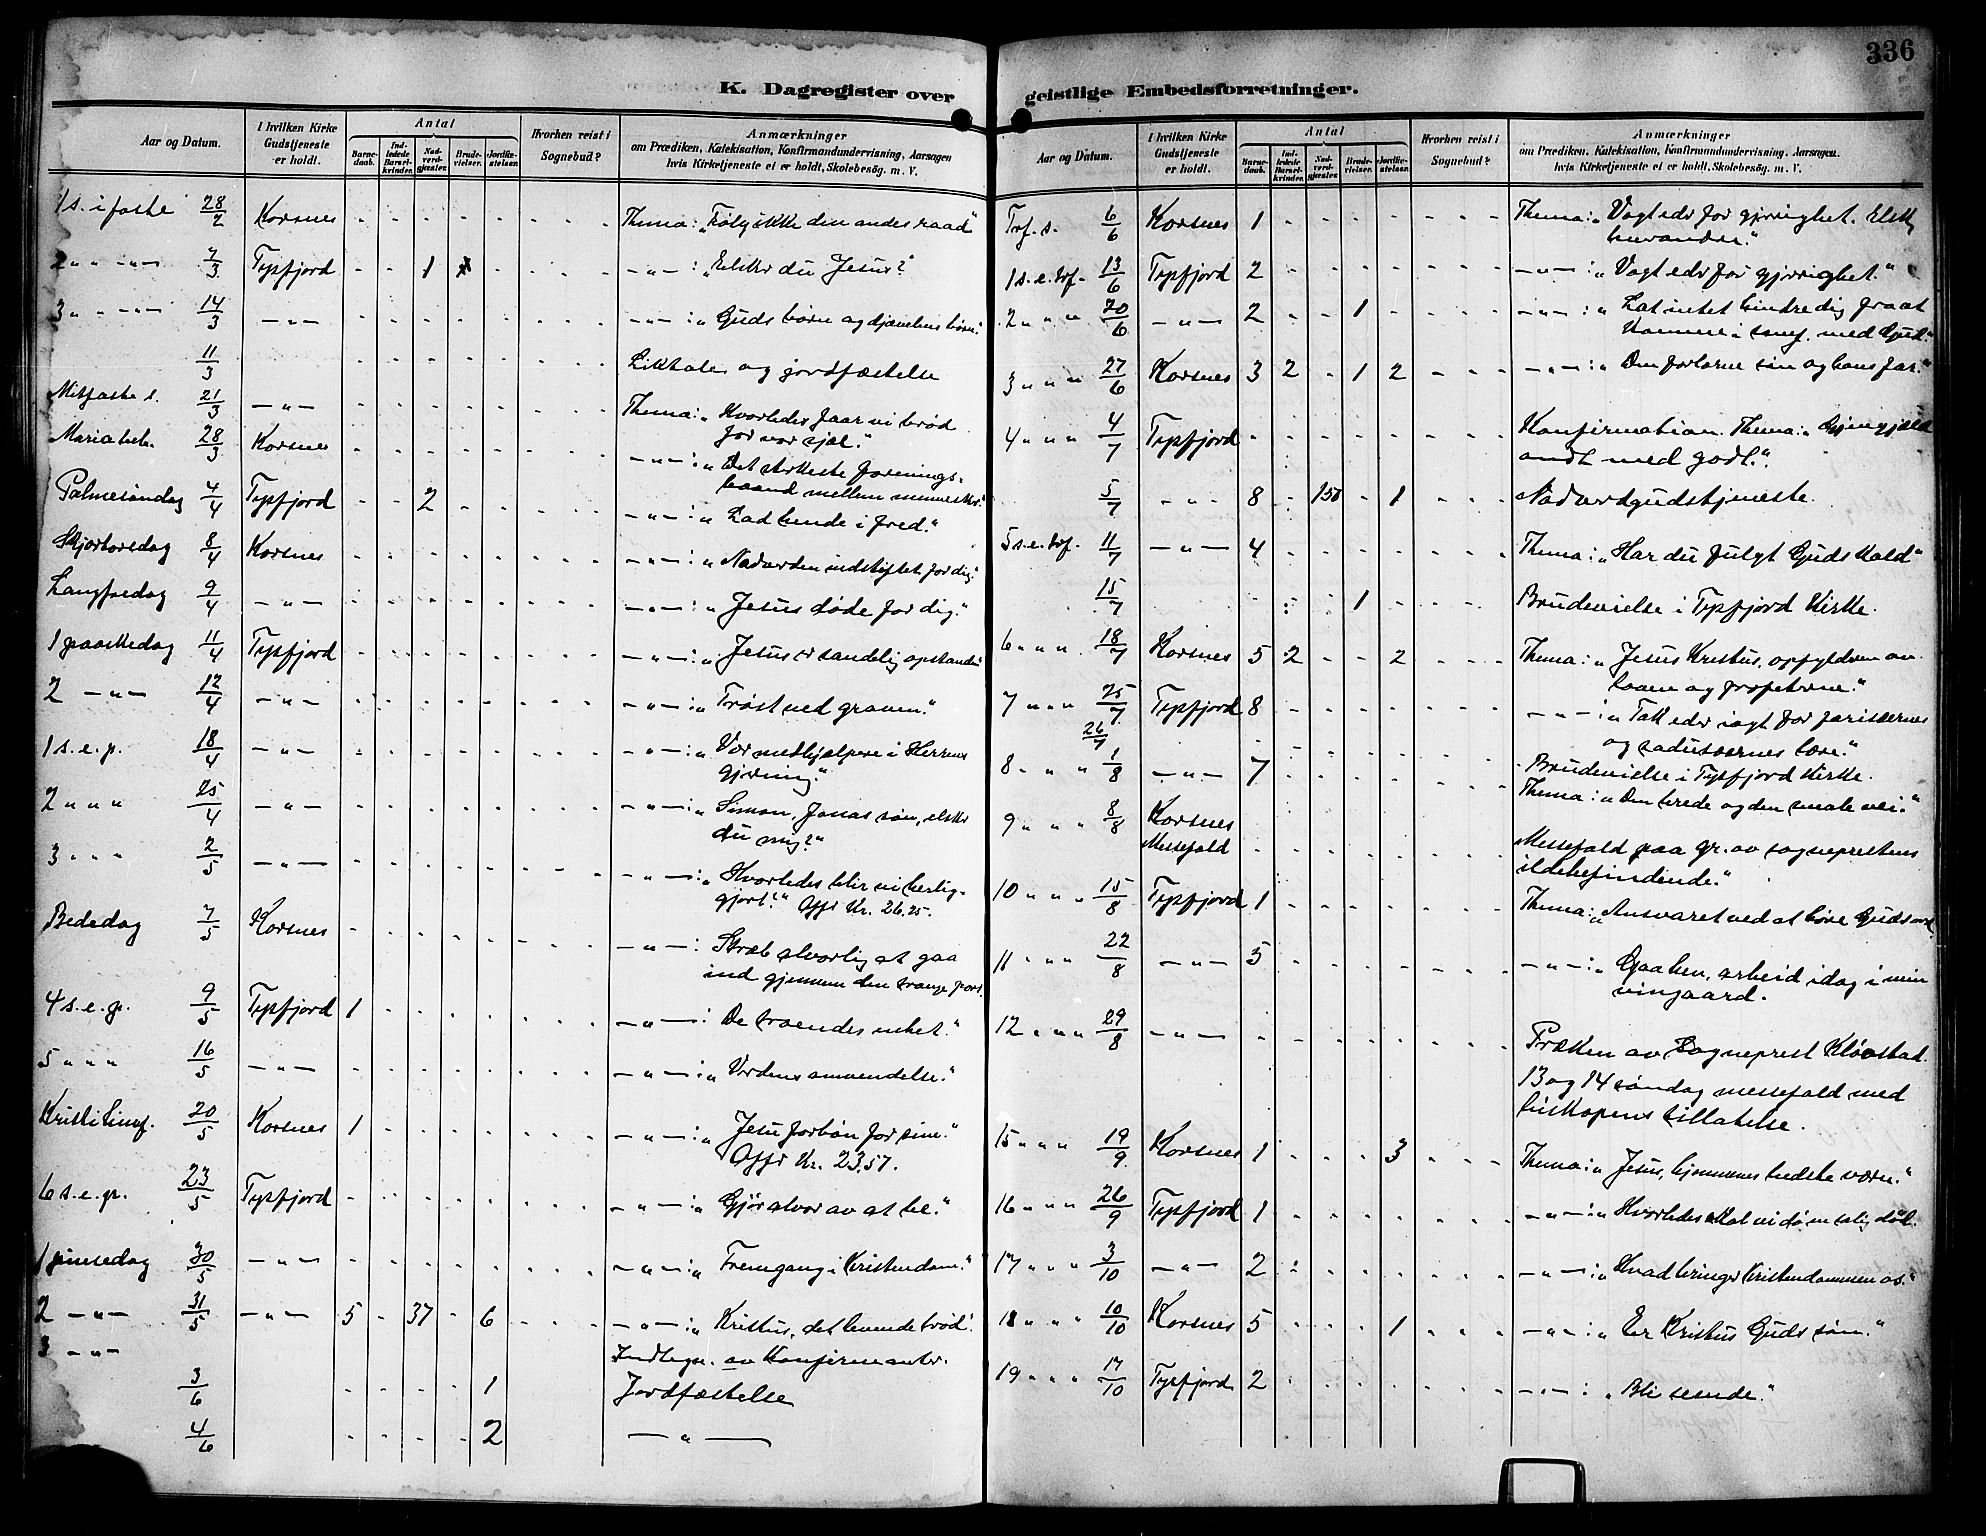 336
K. Dagregister over
Aar og Datum.
I hvilken Kirke Gudstjeneste er holdt.
Antal
Barnedaab.
Indledede Barselkvinder.
Nadverdgjæster.
Brudevielser.
Jordfæstelser.
Hvorhen reist i Sognebud?
Anmærkninger
om Prædiken, Katekisation, Konfirmandundervisning, Aarsagen
hvis Kirketjeneste ei er holdt, Skolebesøg. m. V.
1 s. i faste 28/2 Korsnes Thema: „Følg ikke den andes raad"
2 " " — " — 7/3 Tysfjord - - 1 — " — : „Elsker du Jesus?"
3 " " — " — 14/3 — " — — " — : „Guds børn og djævelens børn."
11/3 Liktale og jordfæstelse
Mitfaste s. 21/3 — " — Thema: „Hvorledes faar vi brød
for vor sjæl."
Maria beb. 28/3 Korsnes — " — : „Det sterkeste forenings-
baand mellem mennesker."
Palmesøndag 4/4 Tysfjord - - 2 — " — : „Lad hende i fred."
Skjærtorsdag 8/4 Korsnes — " — : „Nadverden indstiftet for dig."
Langfredag 9/4 — " — — " — : „Jesus døde for dig."
1 paaskedag 11/4 Tysfjord — " — : „Jesus er sandelig opstanden"
2 — " — 12/4 — " — — " — : „Trøst ved graven."
1 s. e. p. 18/4 — " — — " — : „Vor medhjelpere i Herrens
gjerning."
2 " " " 25/4 — " — — " — : „Simon, Jonas søn, elsker
du mig?"
3 " " " 2/5 — " — — " — : „Hvorledes blir vi herlig-
gjort?" Offer Kr. 26.25.
Bededag 7/5 Korsnes — " — : Stræb alvorlig at gaa
ind gjennem den trange port.
4 s. e. p. 9/5 Tysfjord 1 — " — : De troendes enhet."
5 " " " 16/5 — " — — " — : „Verdens omvendelse."
Kristi Himf. 20/5 Korsnes 1 — " — : „Jesu forbøn for sine."
Offer Kr. 23.57.
6 s. e. p. 23/5 Tysfjord — " — : „Gjør alvor av at be."
1 pinsedag 30/5 — " — — " — : „Fremgang i Kristendom."
2 — " — 31/5 — " — 5 - 37 - 6 — " — : „Kristus, det levende brød."
3 — " — Indtegn. av Konfirmanter.
3/6 1 Jordfæstelse
4/6 2 — " —
geistlige Embedsforretninger.
Aar og Datum.
I hvilken Kirke Gudstjeneste er holdt.
Antal
Barnedaab.
Indledede Barselkvinder.
Nadverdgjæster.
Brudevielser.
Jordfæstelser.
Hvorhen reist i Sognebud?
Anmærkninger
om Prædiken, Katekisation, Konfirmandundervisning, Aarsagen
hvis Kirketjeneste ei er holdt, Skolebesøg. m. V.
Tref. s. 6/6 Korsnes 1 Thema: „Vogt eder for gjerrighet. Elsk
hverandre."
1 s. e. tref. 13/6 Tysfjord 2 — " — : „Vogt eder for gjerrighet."
2 " " " 20/6 — " — 2 - - 1 — " — : „Lat intet hindre dig fra at
komme i samf. med Gud."
3 " " " 27/6 Korsnes 3 2 - 1 2 — " — : „Den fortapte søn og hans far."
4 " " " 4/7 Tysfjord Konfirmation. Thema: „Gjengjæld
ondt med godt."
5/7 — " — 8 - 150 - 1 Nadverdgudstjeneste.
5 s. e. tref. 11/7 — " — 4 Thema: „Har du fulgt Guds kald"
15/7 1 Brudevielse i Tysfjord Kirke.
6 " " " 18/7 Korsnes 5 2 - - 2 Thema: „Jesus Kristus, opfylderen av
loven og profeterne."
7 " " " 25/7 Tysfjord 8 — " — : „Tak eder iagt for fariseernes
og saduseernes lære."
26/7 Brudevielse i Tysfjord Kirke.
8 " " " 1/8 — " — 7 Thema: „Den brede og den smale vei."
9 " " " 8/8 Korsnes
Messefald Messefald paa gr. av sogneprestens
ildebefindende."
10 " " " 15/8 Tysfjord 1 Thema: „Ansvaret ved at høre Guds ord.
11 " " " 22/8 — " — 5 — " — : „Gaa hen, arbeid idag i min
vingaard.
12 " " " 29/8 — " — Præken av Sogneprest Kløvstad.
13 og 14 søndag messefald med
biskopens tillatelse.
15 " " " 19/9 Korsnes 1 - - - 3 Thema: „Jesus, hjemmenes bedste værn."
16 " " " 26/9 Tysfjord 1 — " — : „Hvorledes skal vi dø en salig død.
17 " " " 3/10 — " — 2 — " — : „Hvad bringer Kristendommen os."
18 " " " 10/10 Korsnes 5 - - - 1 — " — : „Er Kristus Guds søn."
19 " " " 17/10 Tysfjord 2 — " — : „Bli seende."